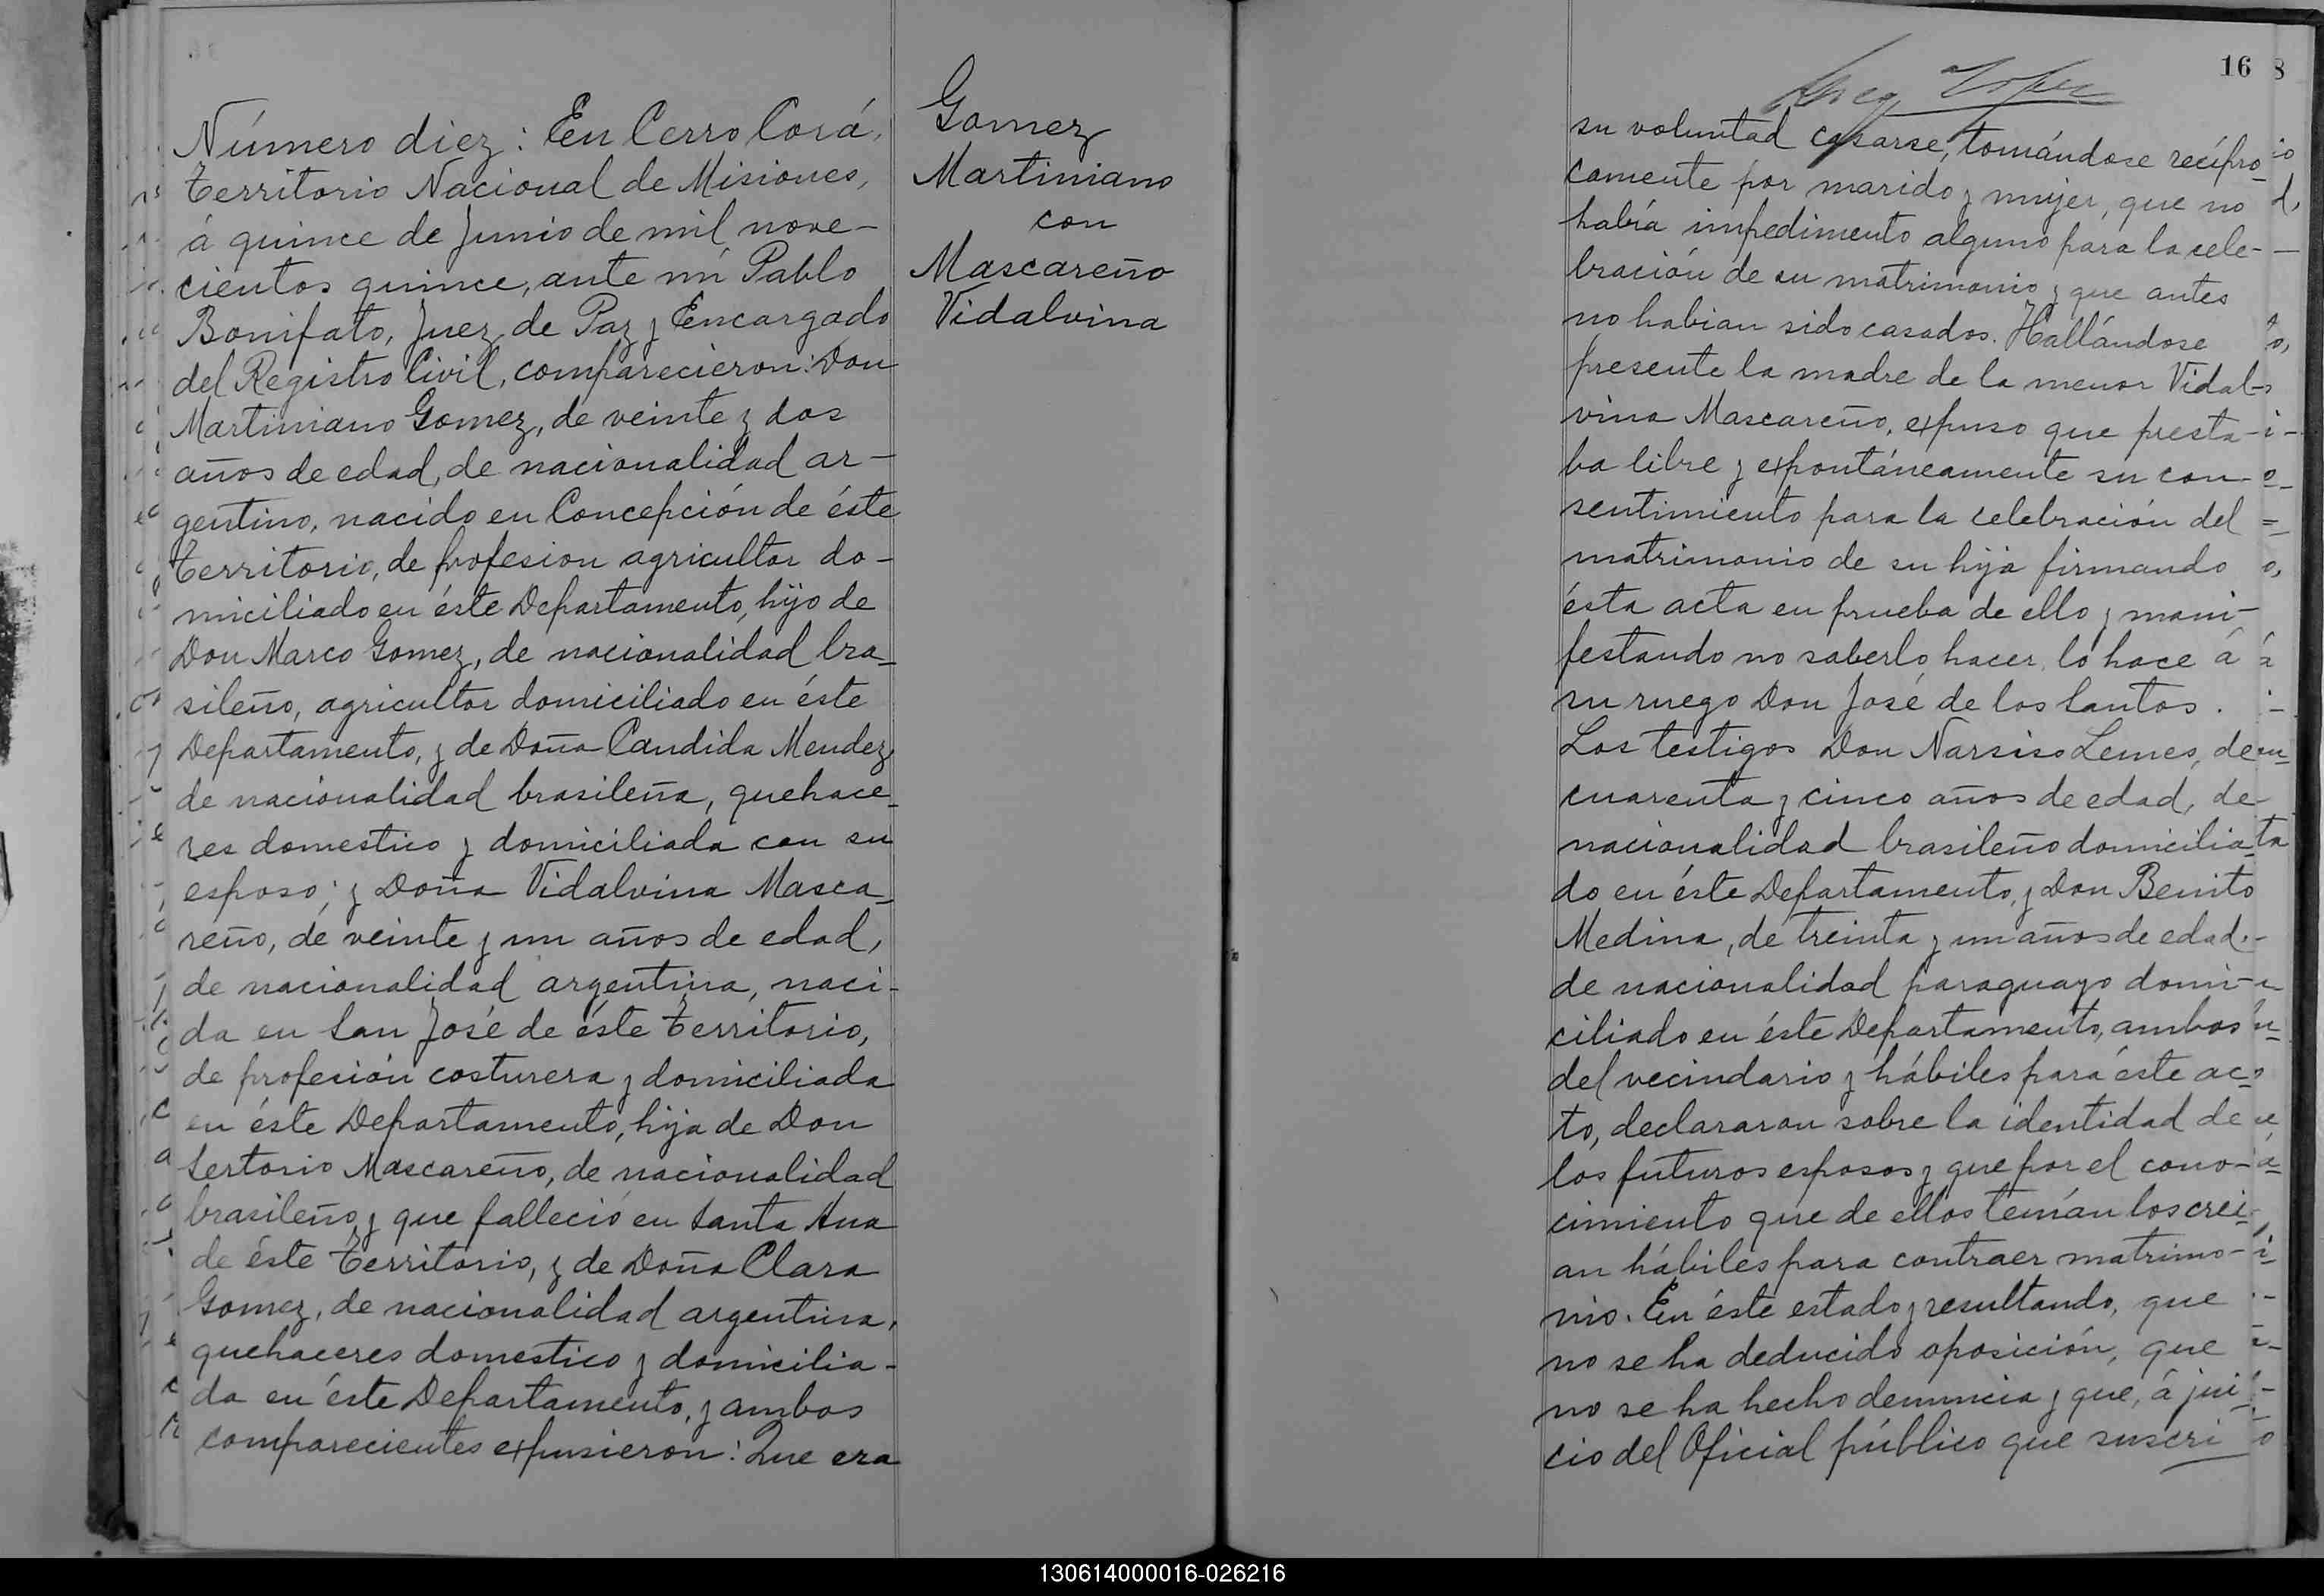 Número diez: En Cerro Corá,
Territorio Nacional de Misiones,
á quince de Junio de mil nove-
cientos quince, ante mí Pablo
Bonifato, Juez de Paz y Encargado
del Registro Civil, comparecieron: Don
Martiniano Gomez, de veinte y dos
años de edad, de nacionalidad ar-
gentino, nacido en Concepción de éste
Territorio, de profesion agricultor do-
miciliado en éste Departamento, hijo de
Don Marco Gomez, de nacionalidad bra-
sileño, agricultor domiciliado en éste
Departamento, y de Doña Candida Mendez
de nacionalidad brasileña, quehace-
res domestico y domiciliada con su
esposo; y Doña Vidalvina Masca-
reño, de veinte y un años de edad,
de nacionalidad argentina, naci-
da en San José de éste Territorio,
de profesión costurera y domiciliada
en éste Departamento, hija de Don
Sertorio Mascareño, de nacionalidad
brasileño y que falleció en Santa Ana
de éste Territorio, y de Doña Clara
Gomez, de nacionalidad argentina,
quehaceres domestico y domicilia-
da en éste Departamento, y ambos
comparecientes expusieron: Que era
Gomez
Martiniano
con
Mascareño
Vidalvina
16 8
su voluntad casarse, tomándose recípro-
camente por marido y mujer, que no
había impedimento alguno para la cele-
bración de su matrimonio y que antes
no habian sido casados. Hallándose
presente la madre de la menor Vidal-
vina Mascareño, expuso que presta-
ba libre y expontáneamente su con-
sentimiento para la celebración del
matrimonio de su hija firmando
ésta acta en prueba de ello y mani-
festando no saberlo hacer, lo hace á
su ruego Don José de los Santos.
Los testigos Don Narsiso Lemes, de
cuarenta y cinco años de edad, de
nacionalidad brasileño domicilia-
do en éste Departamento, y Don Benito
Medina, de treinta y un años de edad
de nacionalidad paraguayo domi-
ciliado en éste Departamento, ambos
del vecindario y hábiles para éste ac-
to, declararon sobre la identidad de
los futuros esposos y que por el cono-
cimiento que de ellos tenían los crei-
an hábiles para contraer matrimo-
nio. En éste estado y resultando, que
no se ha deducido oposición, que
no se ha hecho denuncia y que, á jui-
cio del Oficial público que suscri
130614000016-026216